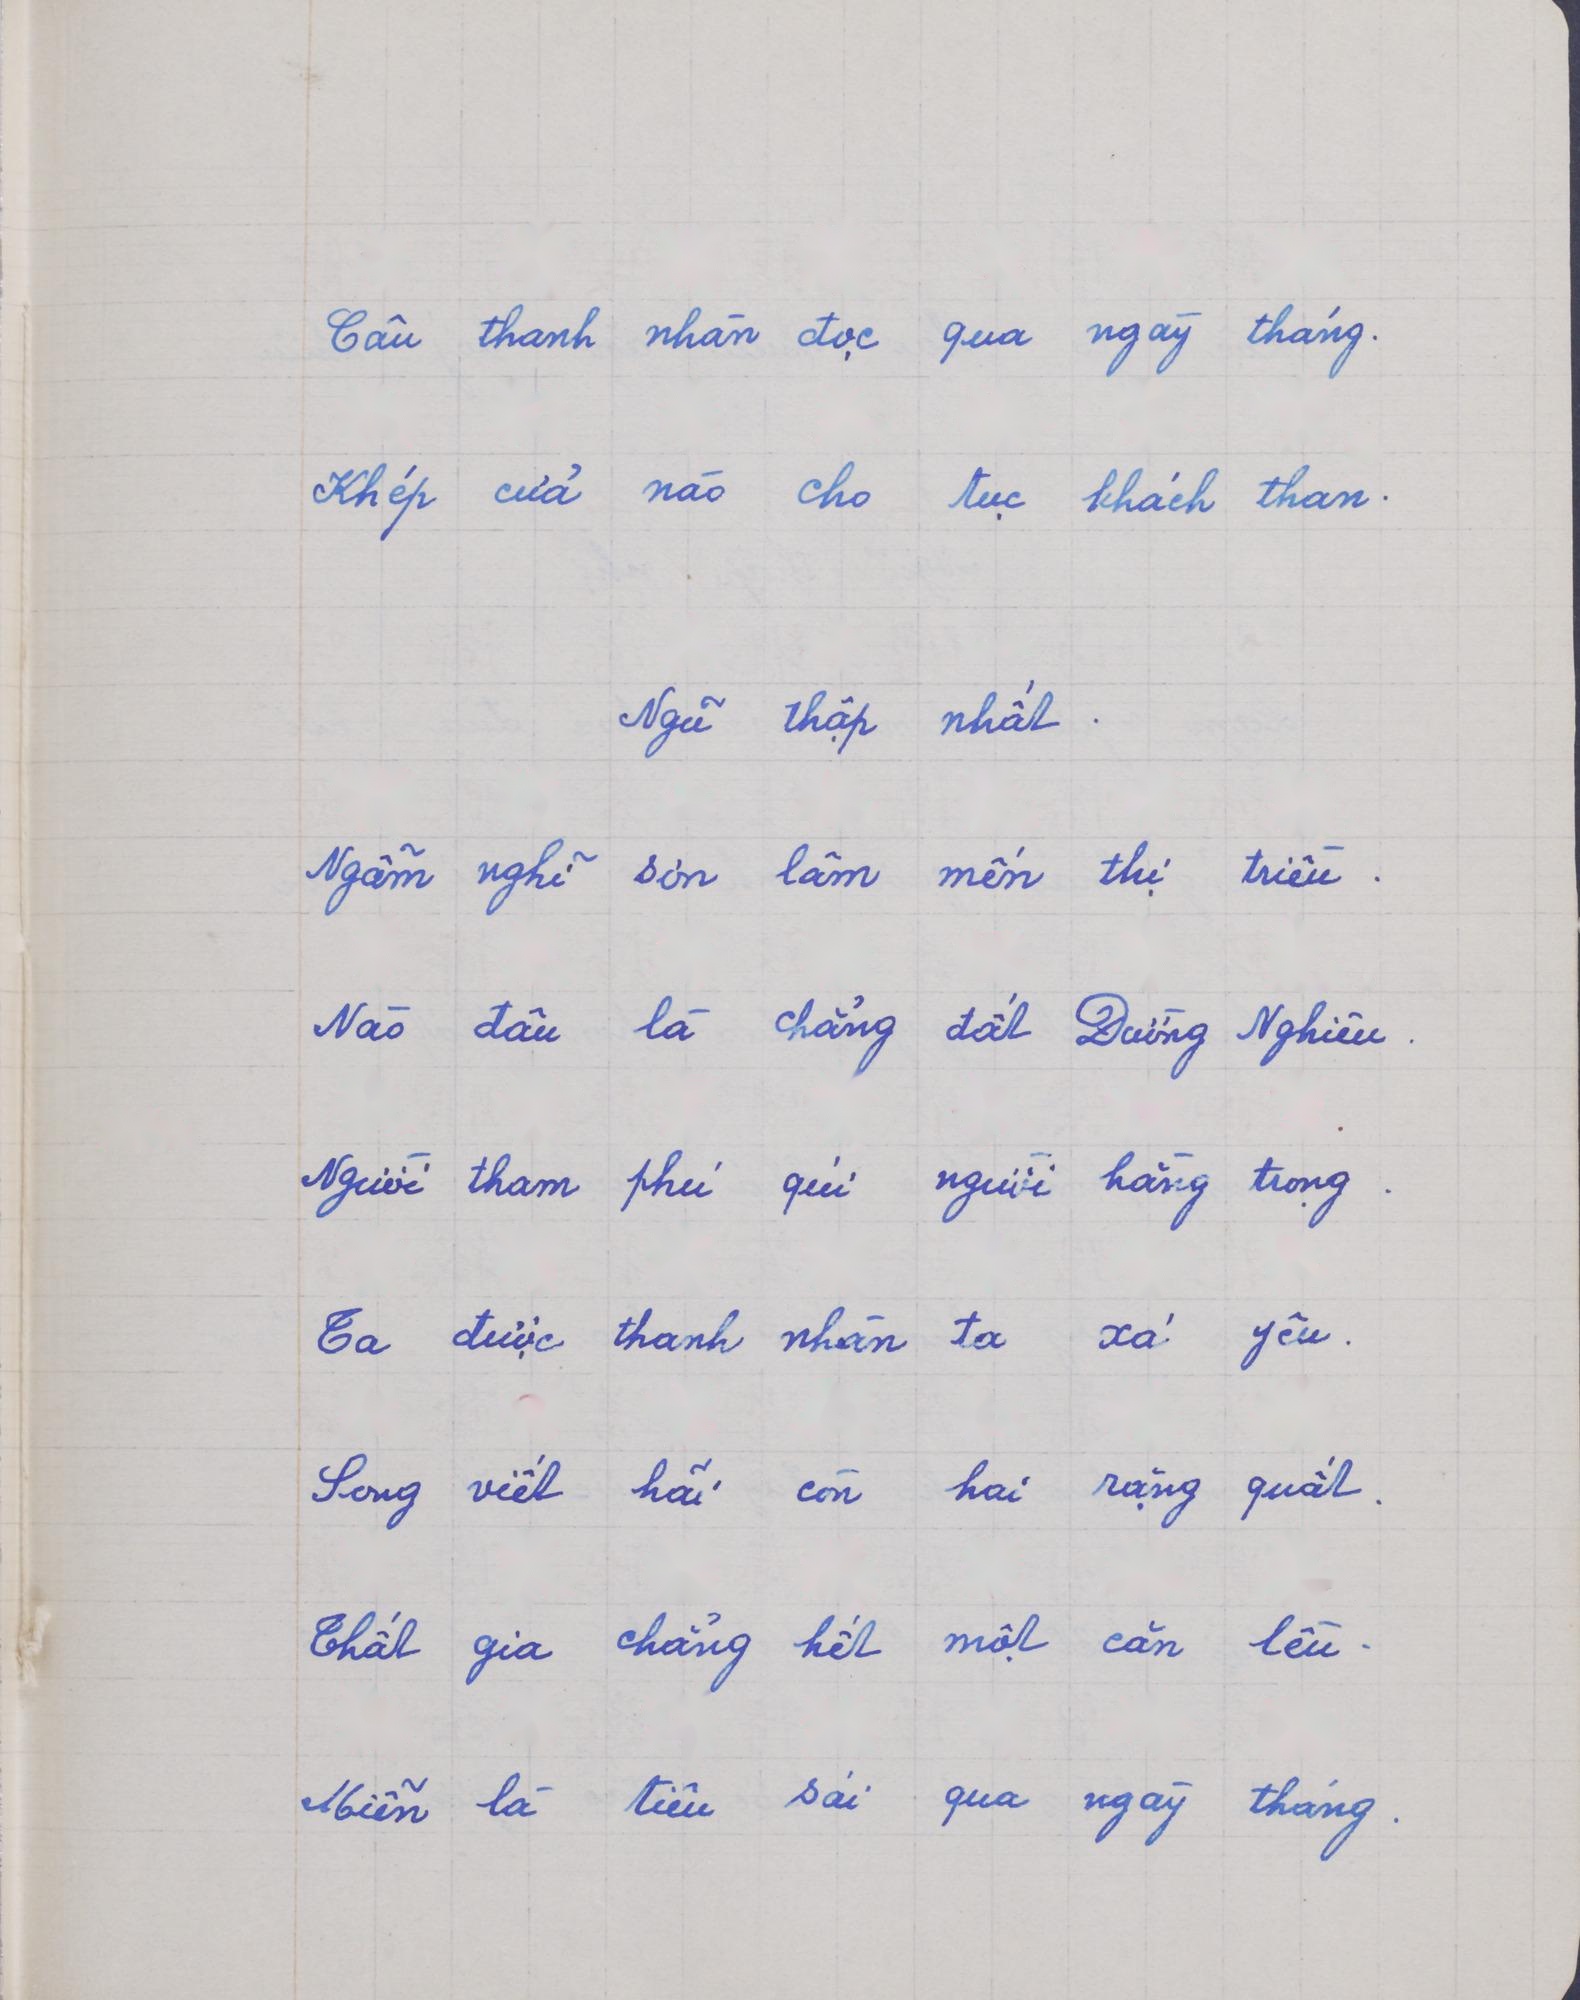 Câu thanh nhàn đọc qua ngày tháng.
Khép cửa nào cho tục khách than.
Ngũ thập nhất.
Ngẫm nghĩ sơn lâm mến thị triều.
Nào đâu là chẳng đất Đường Nghiêu.
Người tham phú quí người hằng trọng.
Ta được thanh nhàn ta xá yêu.
Song viết hãi còn hai rặng quất.
Thất gia chẳng hết một căn lều.
Miễn là tiêu sái qua ngày tháng.